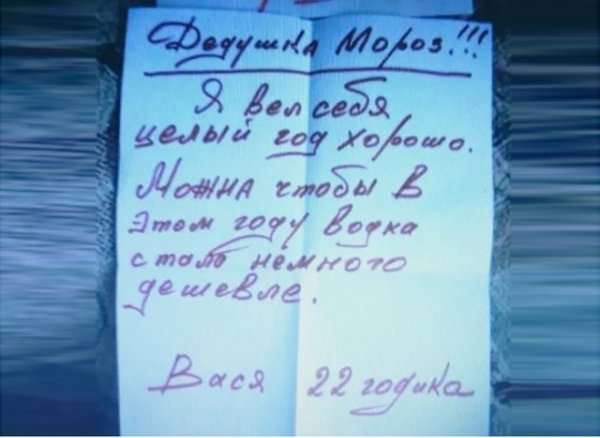 Дедушка Мороз!!!
Я вел себя
целый год хорошо.
Можна чтобы в
этом году водка
стало немного
дешевле.
Вася 22 годика